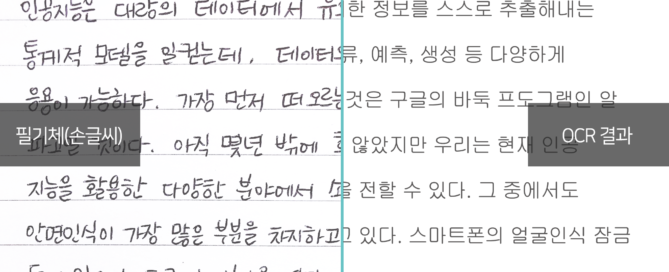 인공지능은 대량의 데이터에서 유의한 정보를 스스로 추출해내는
통계적 모델을 일컫는데, 데이터류, 예측, 생성 등 다양하게
응용이 가능하다. 가장 먼저 떠오르는 것은 구글의 바둑 프로그램인 알
필기체(손글씨)
파고일 것이다. 아직 몇년 밖에 않았지만 우리는 현재 인공
OCR 결과
지능을 활용한 다양한 분야에서 을 전할 수 있다. 그 중에서도
안면인식이 가장 많은 부분을 차지하고 있다. 스마트폰의 얼굴인식 잠금